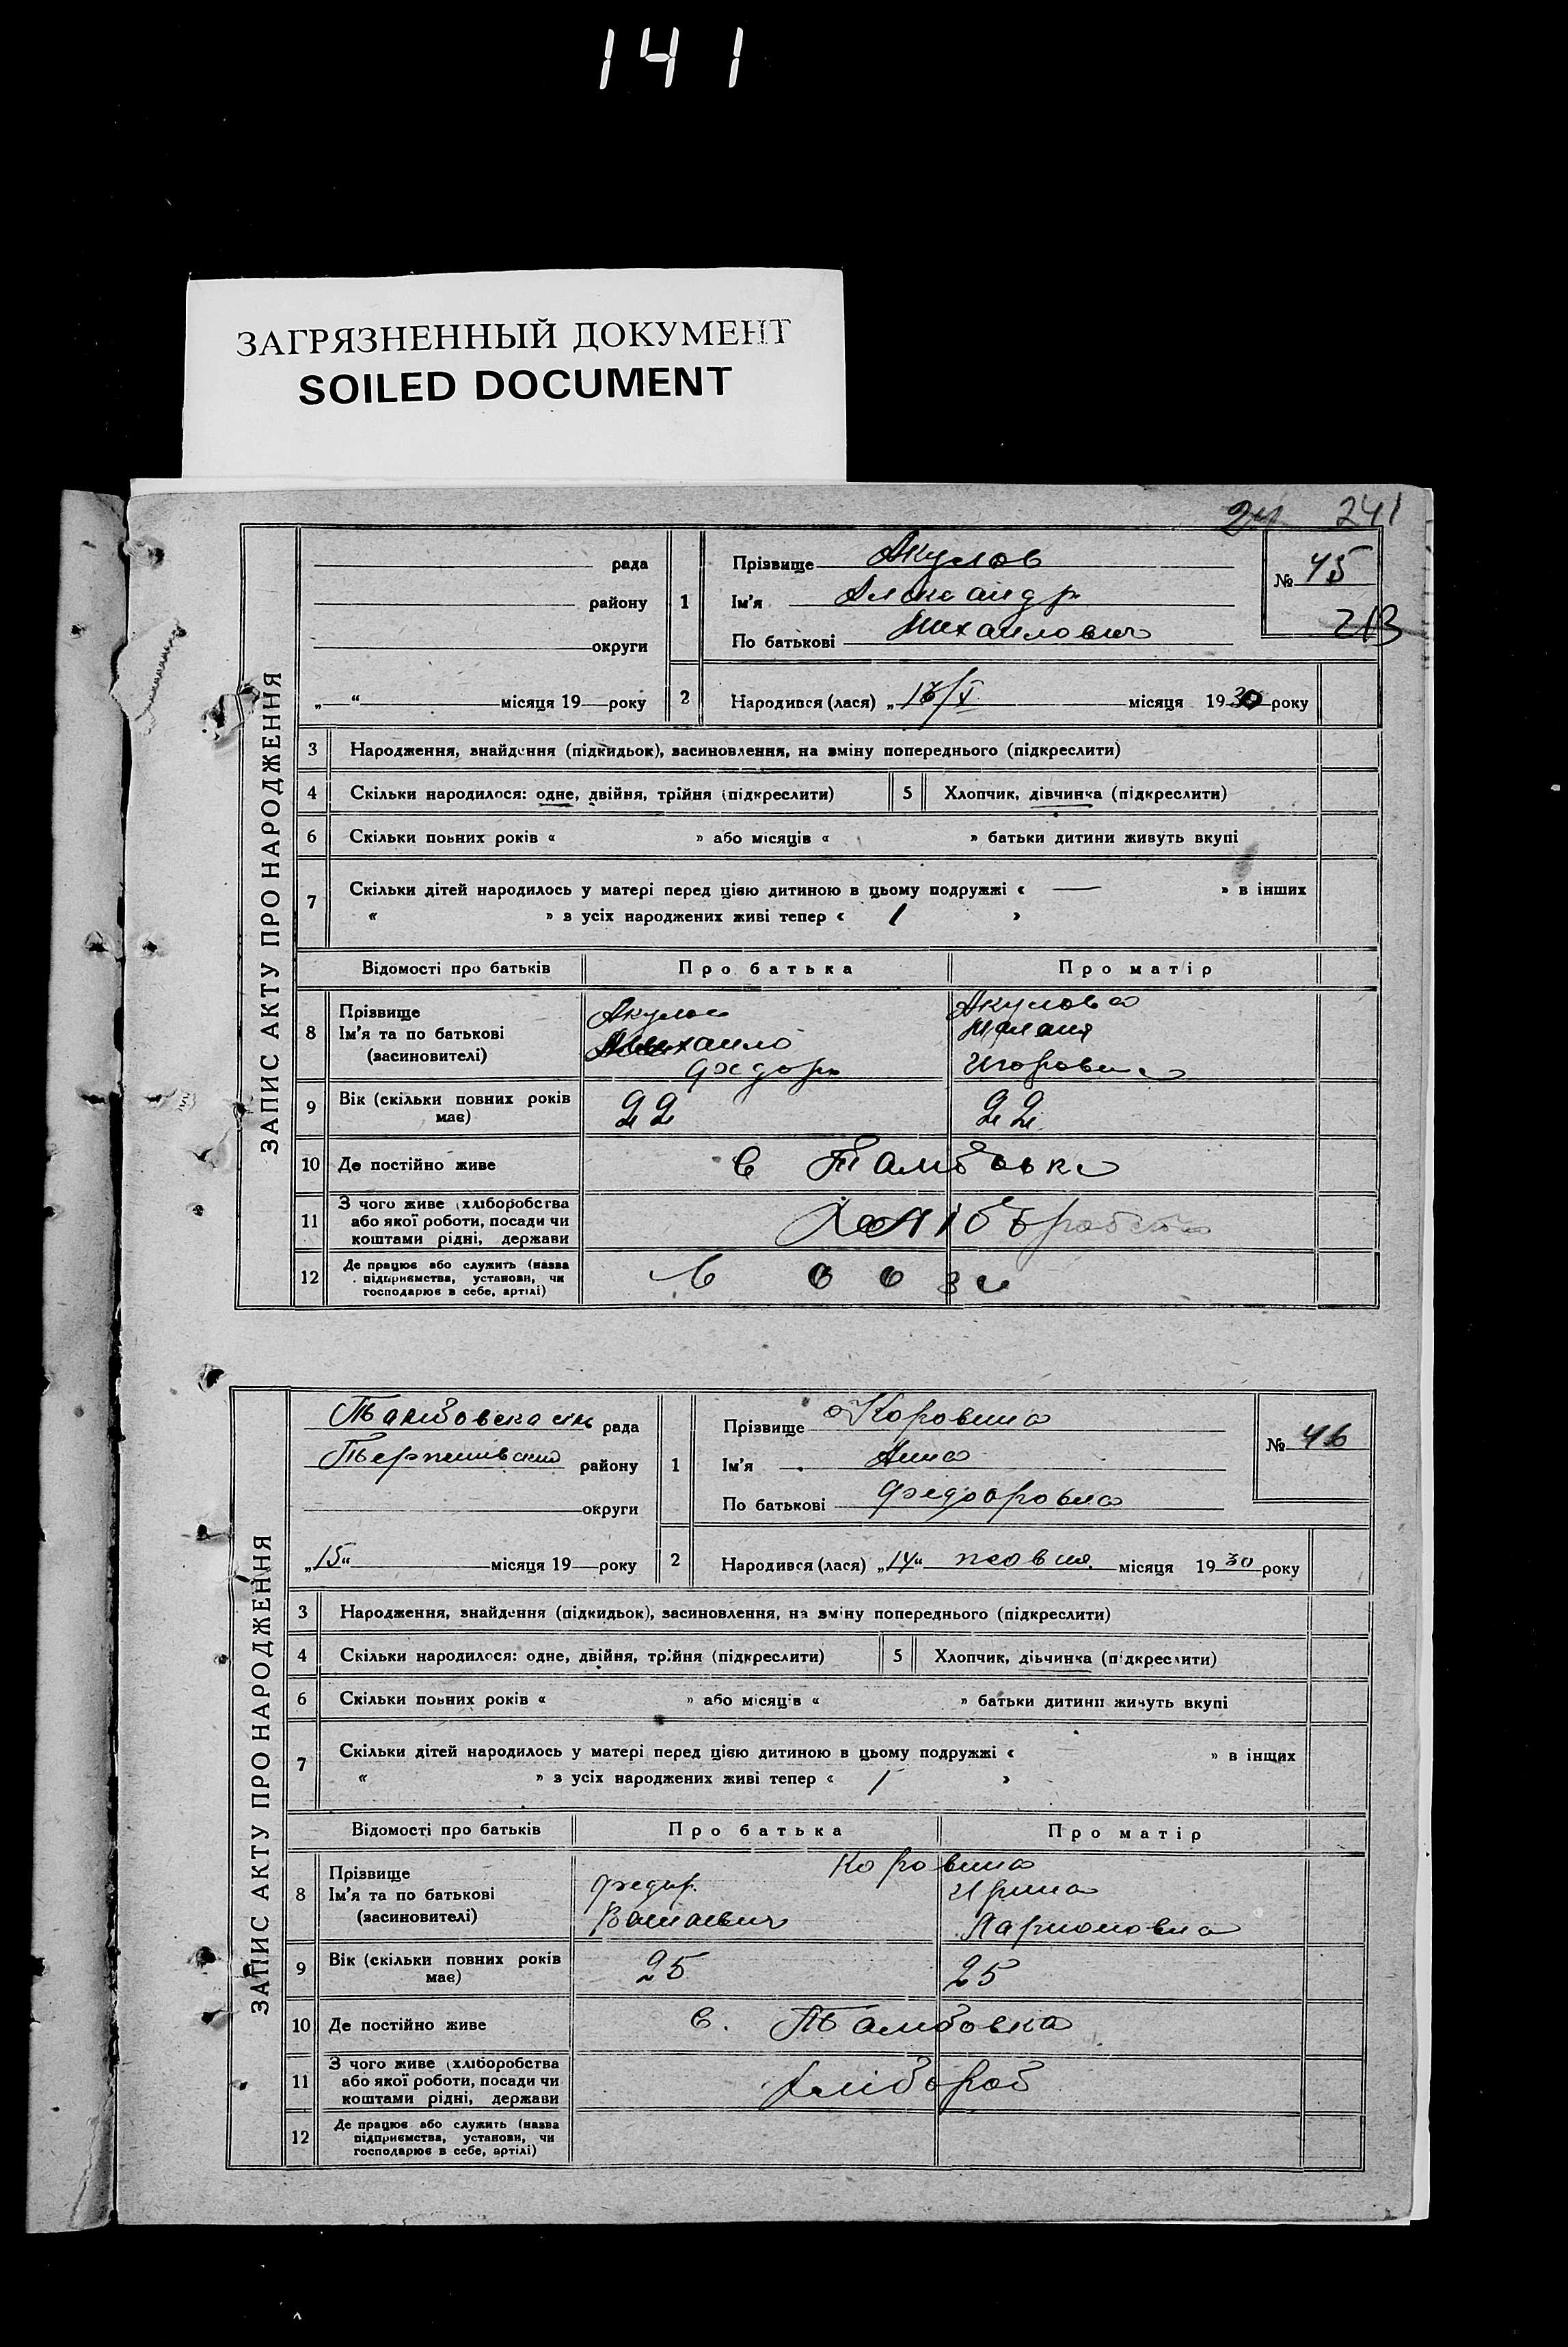 141
ЗАГРЯЗНЕННЫЙ ДОКУМЕНТ
SOILED DOCUMENT
24 241
ЗАПИС АКТУ ПРО НАРОДЖЕННЯ
рада
району
округи
„ “ місяця 19 року
1 Прізвище Акулов
Ім'я Александр
По батькові Михаилович
№ 45
213
2 Народився (лася) „ /X місяця 1930 року
3 Народження, знайдення (підкидьок), засиновлення, на зміну попереднього (підкреслити)
4 Скільки народилося: одне, двійня, трійня (підкреслити) 5 Хлопчик, дівчинка (підкреслити)
6 Скільки повних років « » або місяців « » батьки дитини живуть вкупі
7 Скільки дітей народилось у матері перед цією дитиною в цьому подружжі « — » в інших
« » з усіх народжених живі тепер « 1 »
Відомості про батьків Про батька Про матір
8 Прізвище
Ім'я та по батькові
(засиновителі)
Акулов
Михаило
Федорв
Акулова
9 Вік (скільки повних років має) 22 22
10 Де постійно живе с Тамбовка
11 З чого живе (хліборобства
або якої роботи, посади чи
коштами рідні, держави
12 Де працює або служить (назва
підприємства, установи, чи
господарює в себе, артілі)
В созі
ЗАПИС АКТУ ПРО НАРОДЖЕННЯ
Тамбовска рада
району
округи
„15“ місяця 19 року
1 Прізвище Коровина
Ім'я Анна
По батькові Федоровна
№ 46
2 Народився (лася) „14“ жовтня місяця 1930 року
3 Народження, знайдення (підкидьок), засиновлення, на зміну попереднього (підкреслити)
4 Скільки народилося: одне, двійня, трійня (підкреслити) 5 Хлопчик, дівчинка (підкреслити)
6 Скільки повних років « » або місяців « » батьки дитини живуть вкупі
7 Скільки дітей народилось у матері перед цією дитиною в цьому подружжі « » в інших
« » з усіх народжених живі тепер « 1 »
Відомості про батьків Про батька Про матір
8 Прізвище
Ім'я та по батькові
(засиновителі)
Коровина
Федир
Василевич
Ирина
Ларионовна
9 Вік (скільки повних років має) 25 25
10 Де постійно живе с. Тамбовка
11 З чого живе (хліборобства
або якої роботи, посади чи
коштами рідні, держави
хлібороб
12 Де працює або служить (назва
підприємства, установи, чи
господарює в себе, артілі)